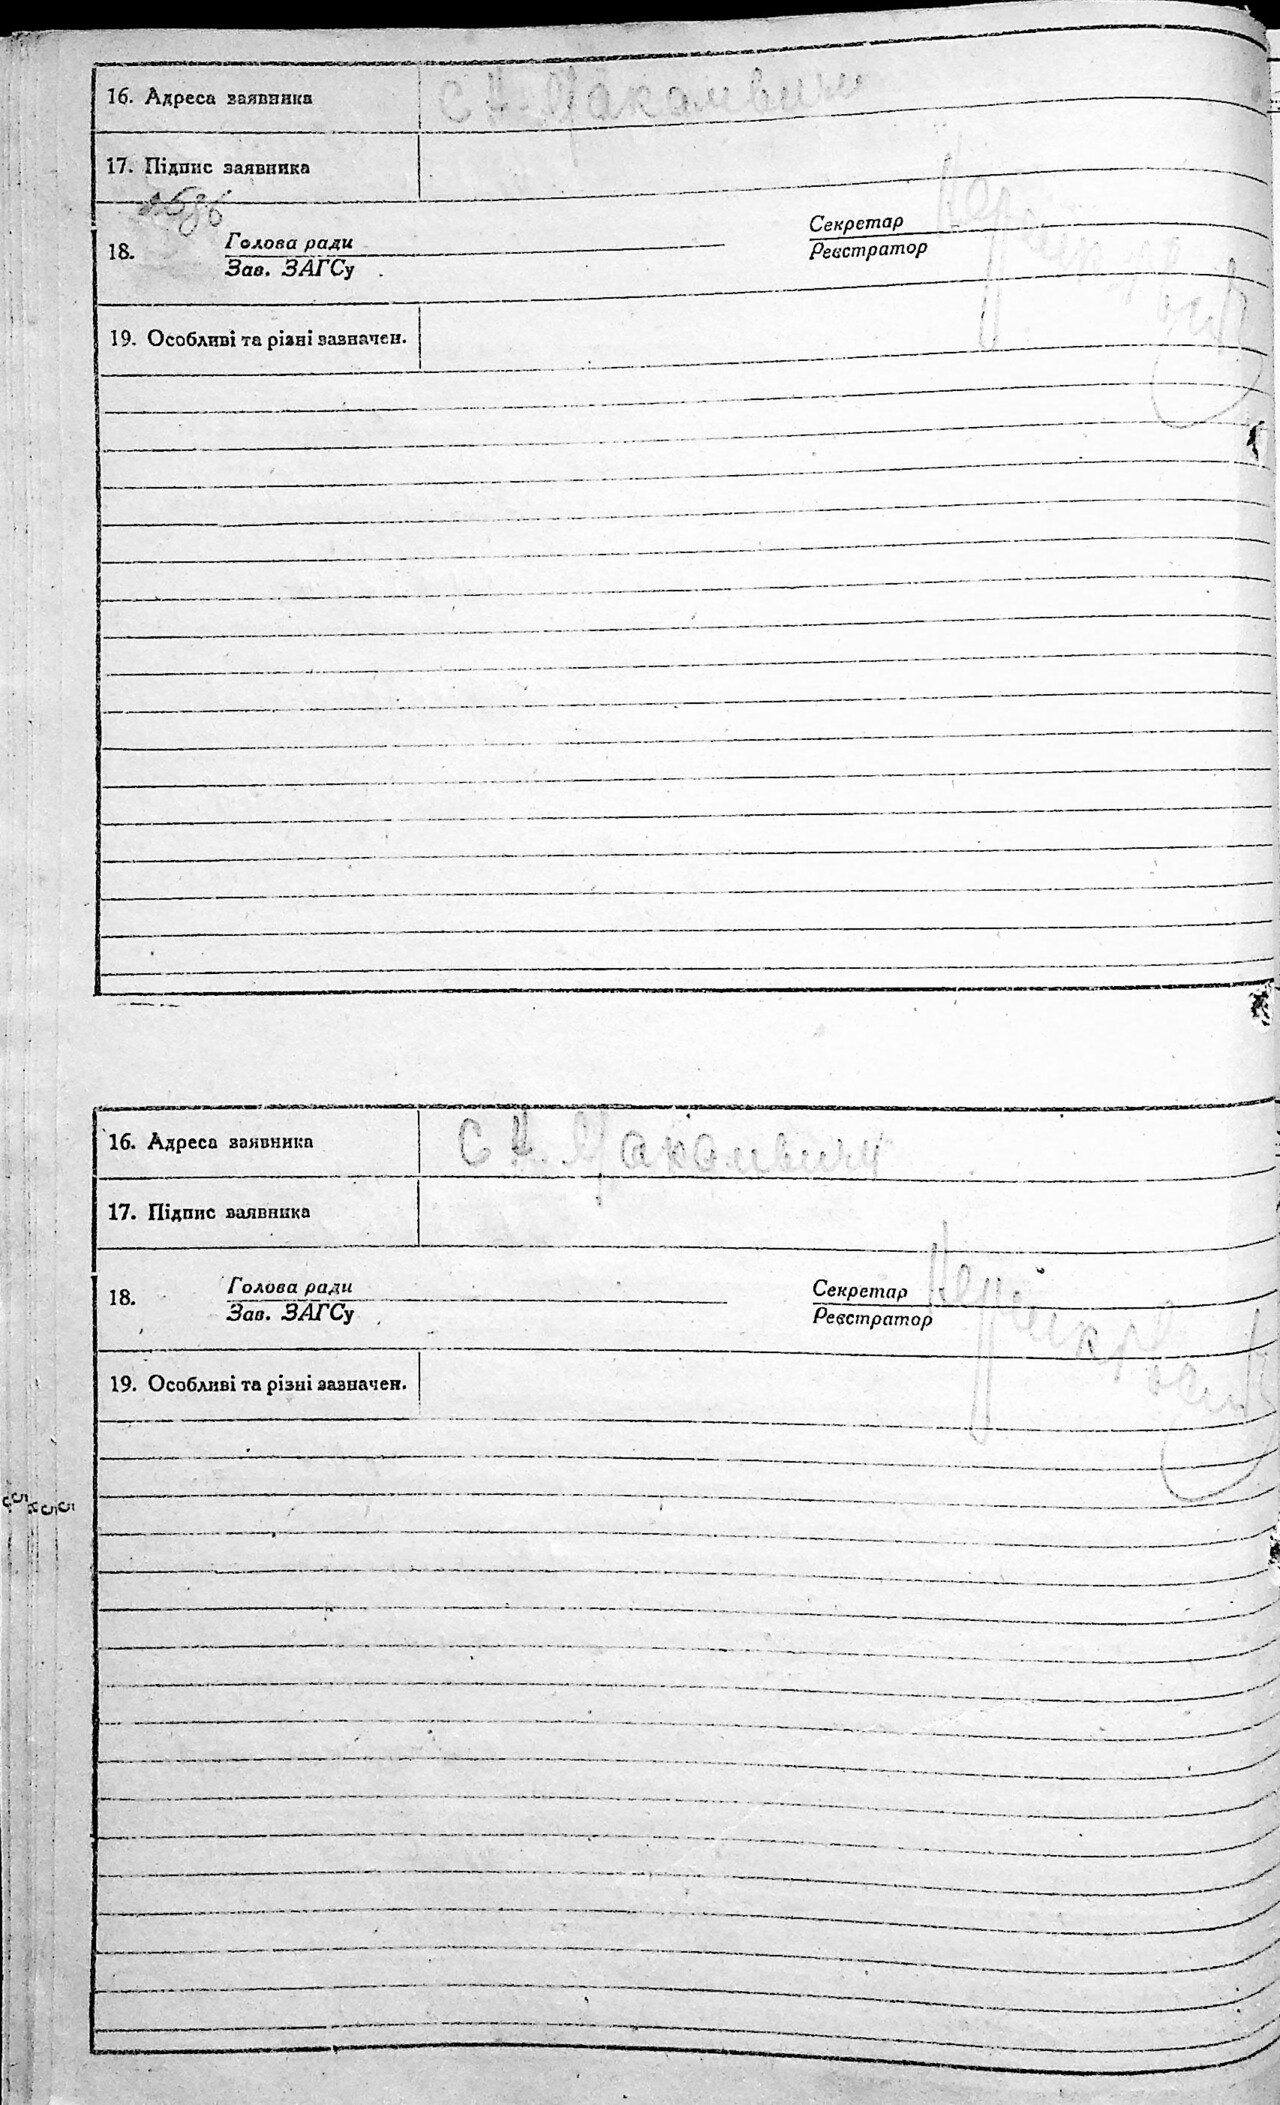 16. Адреса заявника С Н.
17. Підпис заявника
18. Голова ради Секретар
Зав. ЗАГСу Реєстратор
19. Особливі та різні зазначен.
16. Адреса заявника С Н.
17. Підпис заявника
18. Голова ради Секретар
Зав. ЗАГСу Реєстратор
19. Особливі та різні зазначен.